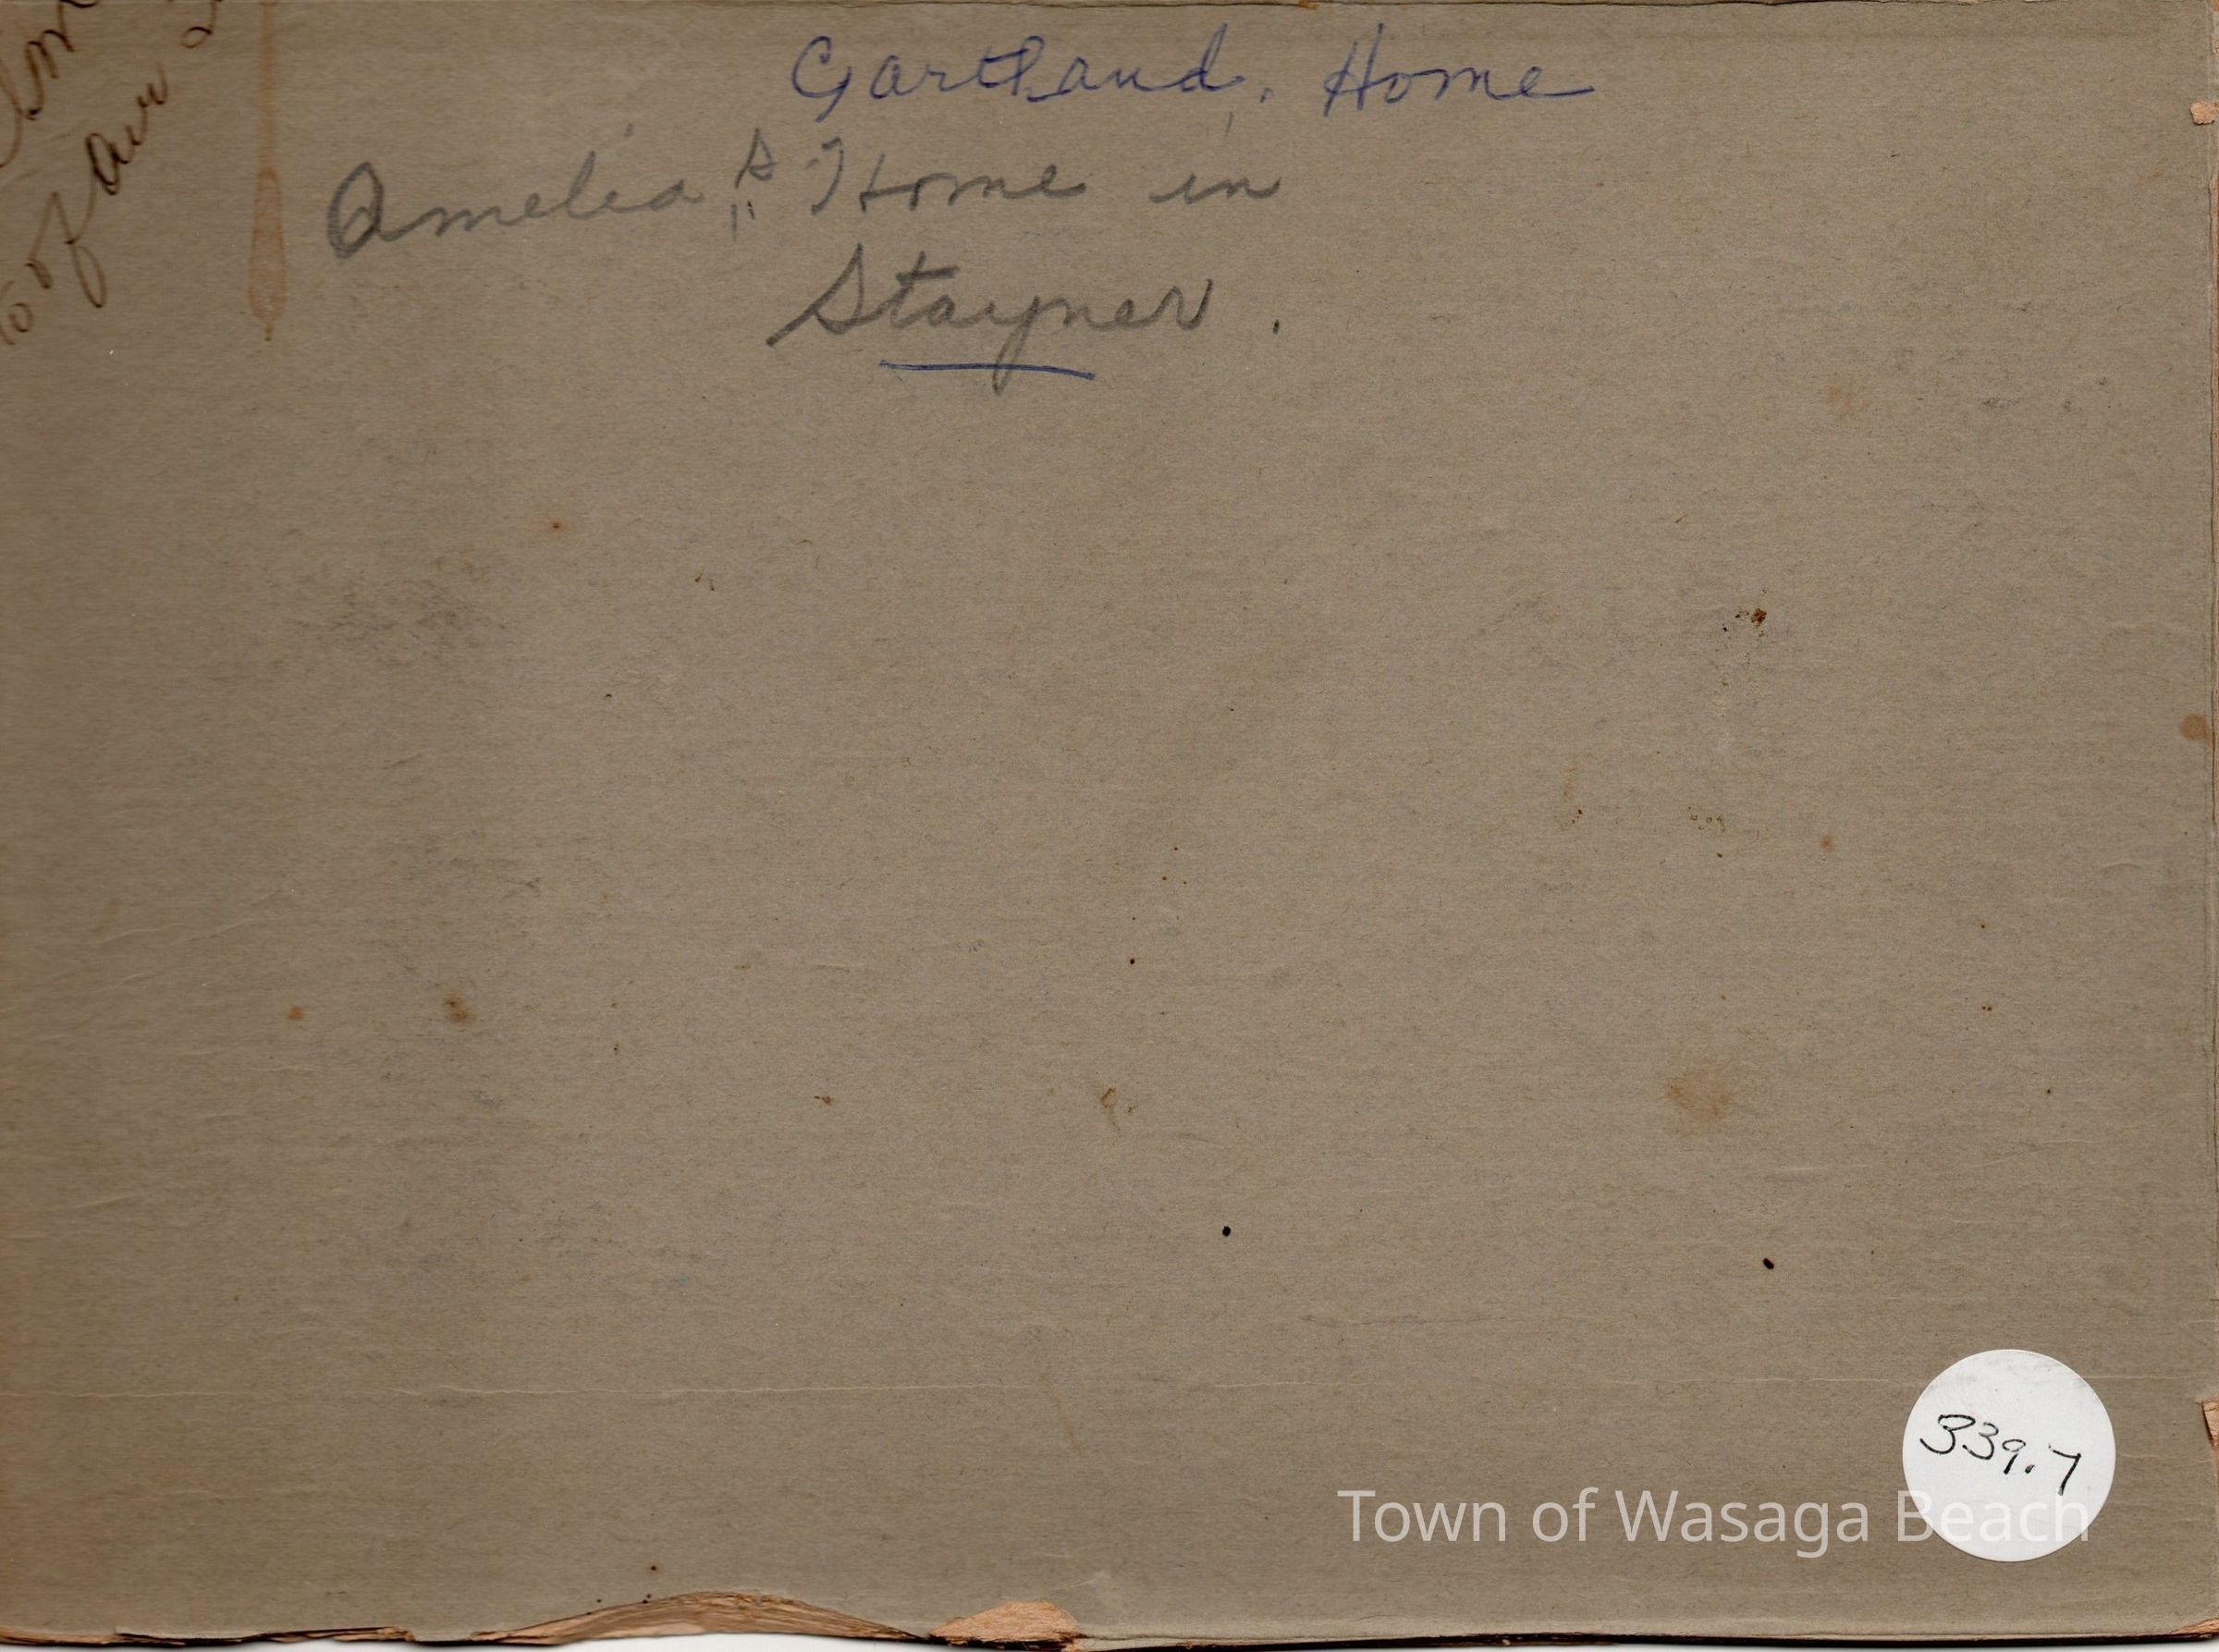 Gartland. Home
Amelia's Home in
Stayner.
of our
339.7
Town of Wasaga Beach